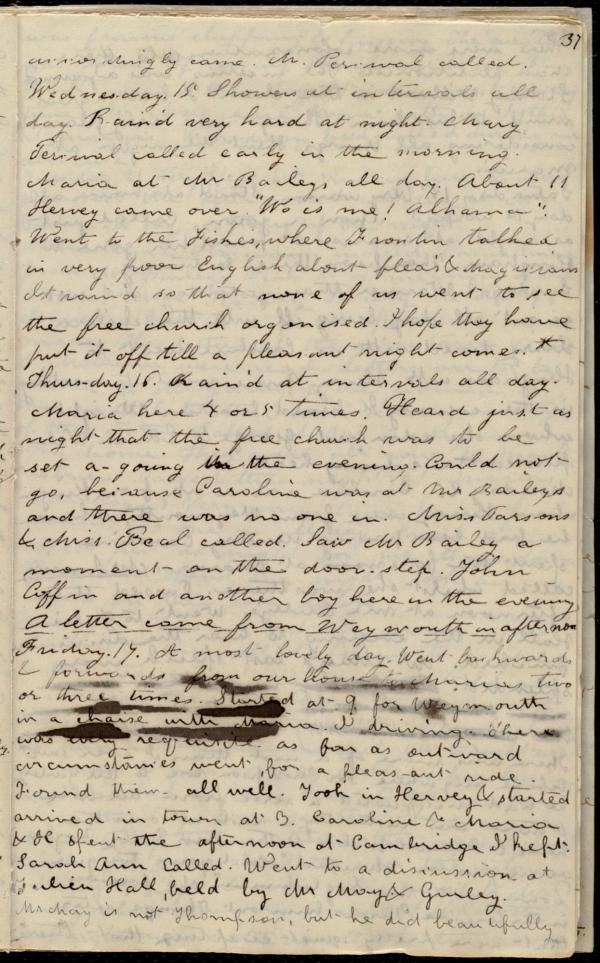 37
accordingly came. M. Perival called.
Wednesday. 15. Showers at intervals all
day. Rain'd very hard at night. Mary
Perival called early in the morning.
Maria at Mr Baileys all day. About 11
Hervey came over. "Wo is me! Alhama".
Went to the Fishes, where Frontin talked
in very poor English about fleas & magicians
It raind so that none of us went to see
the free church organised. I hope they have
put it off till a pleasant night comes. *
Thursday. 16. Rain'd at intervals all day.
Maria here 4 or 5 times. Heard just as
night that the free church was to be
set a-going in the evening. Could not
go, because Caroline was at Mr Baileys
and there was no one in. Miss Parsons
& Miss Beal called. Saw Mr Bailey a
moment on the door-step. John
Coffin and another boy here in the evening
A letter came from Weymouth in afternoon
Friday. 17. A most lovely day. Went backwards
& forwards from our house to Marias two
or three times. Started at 9 for Weymouth
in a chaise with Maria I driving. There
was every requisite as far as outward
circumstances went, for a pleas-ant ride.
Found them all well. Took in Hervey & started
arrived in town at 3. Caroline & Maria
& H spent the afternoon at Cambridge I kept.
Sarah Ann called. Went to a discussion at
Julien Hall, held by Mr May & Gurley.
Mr May is not Thompson, but he did beautifully